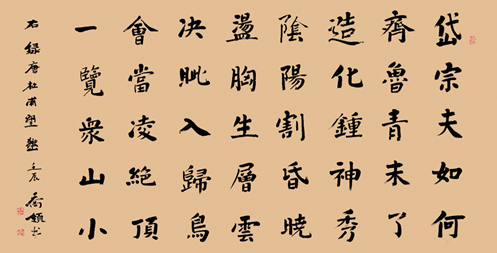 岱宗夫如何
齊魯青未了
造化鍾神秀
陰陽割昏曉
盪胸生層雲
決眦入歸鳥
會當凌絕頂
一覽衆山小
右錄唐杜甫望嶽壬辰